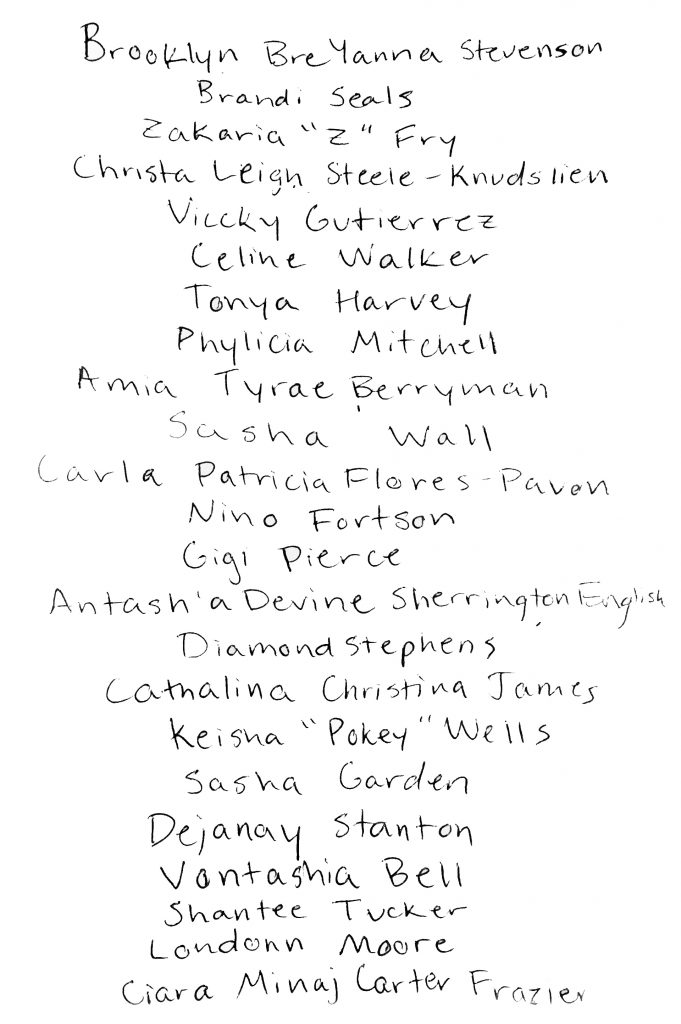 Brooklyn BreYanna Stevenson
Brandi Seals
Zakaria "Z" Fry
Christa Leigh Steele-Knudslien
Viccky Gutierrez
Celine Walker
Tonya Harvey
Phylicia Mitchell
Amia Tyrae Berryman
Sasha Wall
Carla Patricia Flores-Pavon
Nino Fortson
Gigi Pierce
Antash'a Devine Sherrington English
Diamond Stephens
Cathalina Christina James
Keisha "Pokey" Wells
Sasha Garden
Dejanay Stanton
Vontashia Bell
Shantee Tucker
Londonn Moore
Ciara Minaj Carter Frazier